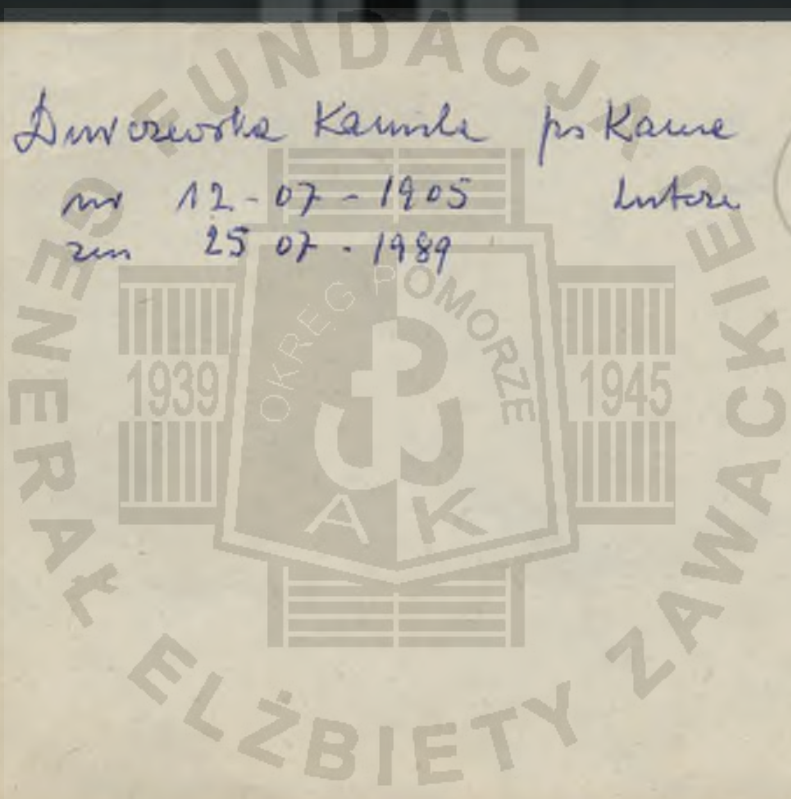 Kamila ps Kama
ur 12-07-1905
zm 25 07 - 1989
FUNDACJA
GENERAŁ ELŻBIETY ZAWACKIEJ
OKRĘG POMORZE
1939
1945
AK